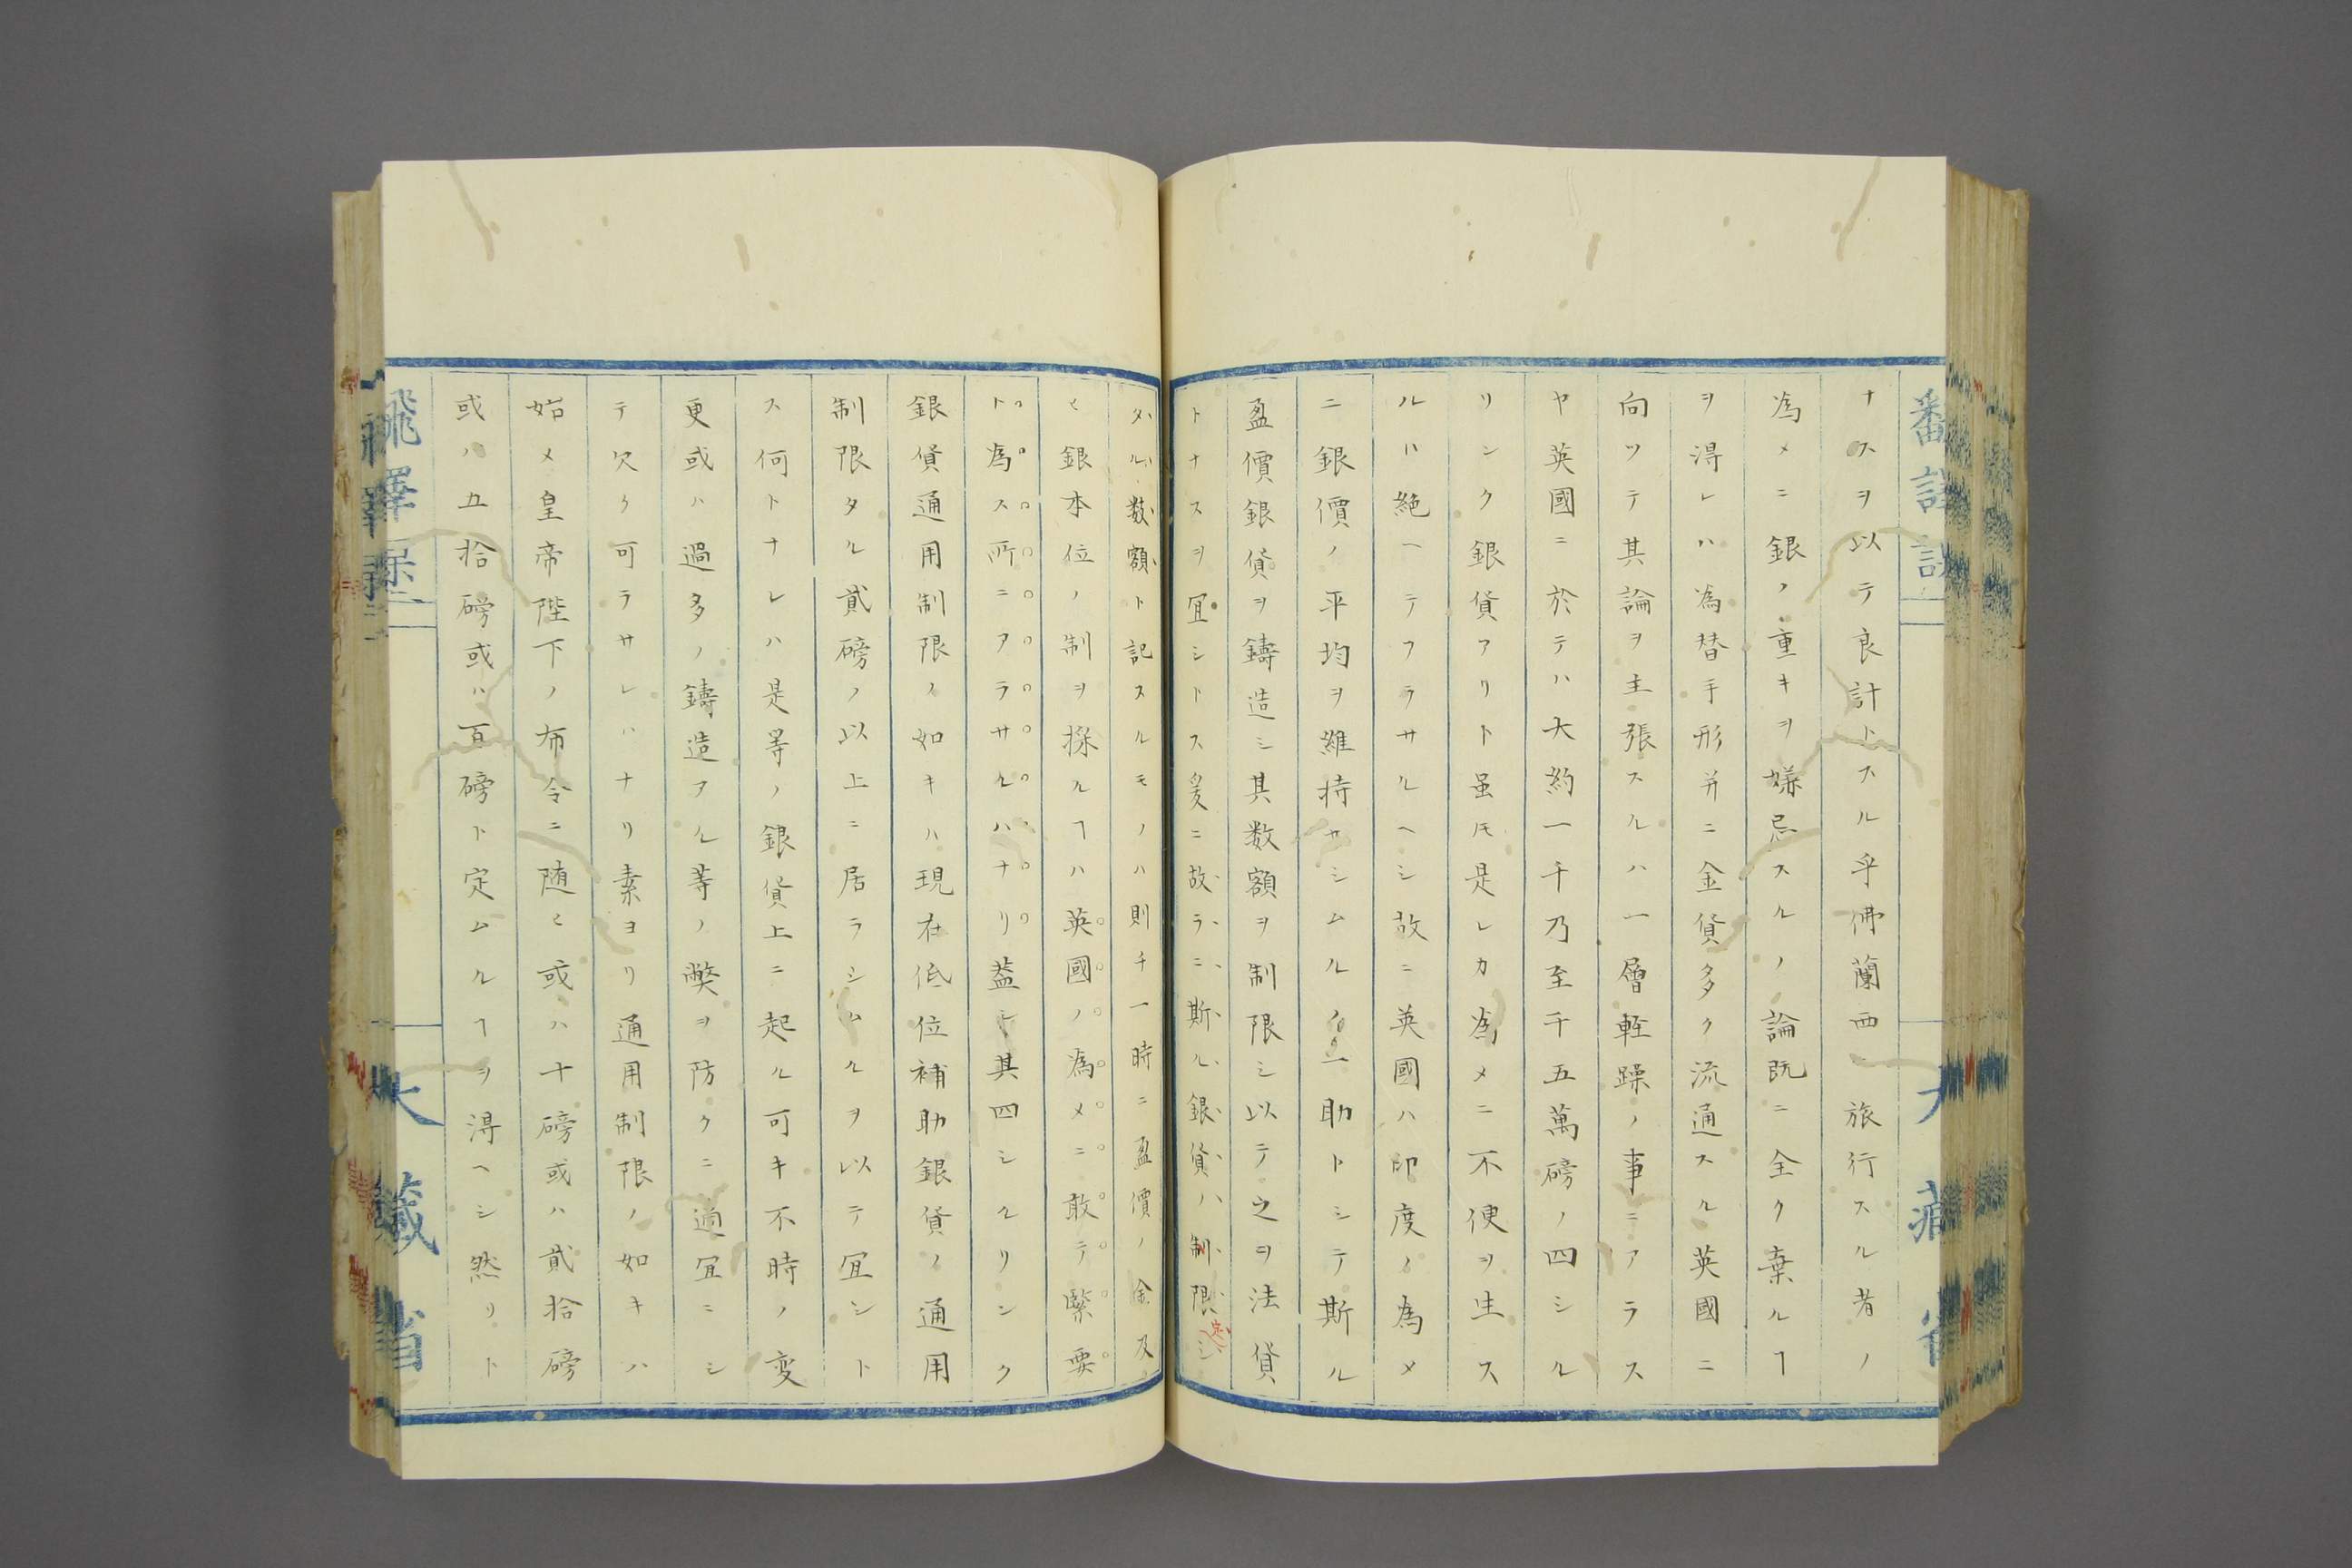 ナスヲ以テ良計トスル乎佛蘭西ニ旅行スル者ノ
為メニ銀ノ重キヲ嫌忌スルノ論既ニ全ク棄ルヿ
ヲ得レハ為替手形并ニ金貨多ク流通スル英國ニ
向ツテ其論ヲ主張スルハ一層輕躁ノ事ニアラス
ヤ英國ニ於テハ大約一千乃至千五萬磅ノ四シル
リンク銀貨アリト虽𪜈是レカ為メニ不便ヲ生ス
ルハ絶ヘテアラサルヘシ故ニ英國ハ印度ノ為メ
ニ銀價ノ平均ヲ維持セシムルノ一助トシテ斯ル
盈價銀貨ヲ鑄造シ其数額ヲ制限シ以テ之ヲ法貨
トナスヲ冝シトス爰ニ故ラニ斯ル銀貨ハ制限シ
定
タル数額ト記スルモノハ則チ一時ニ盈價ノ金及
ヒ銀本位ノ制ヲ採ルヿハ英國ノ為メニ敢テ緊要
ト為ス所ニアラサルハナリ蓋シ其四シルリンク
銀貨通用制限ノ如キハ現在低位補助銀貨ノ通用
制限タル貳磅ノ以上ニ居ラシムルヲ以テ冝シト
ス何トナレハ是等ノ銀貨上ニ起ル可キ不時ノ変
更或ハ過多ノ鑄造アル等ノ弊ヲ防クニ適冝ニシ
テ欠ク可ラサレハナリ素ヨリ通用制限ノ如キハ
始メ皇帝陛下ノ布令ニ随ヒ或ハ十磅或ハ貳拾磅
或ハ五拾磅或ハ百磅ト定ムルヿヲ得ヘシ然リト
大藏省